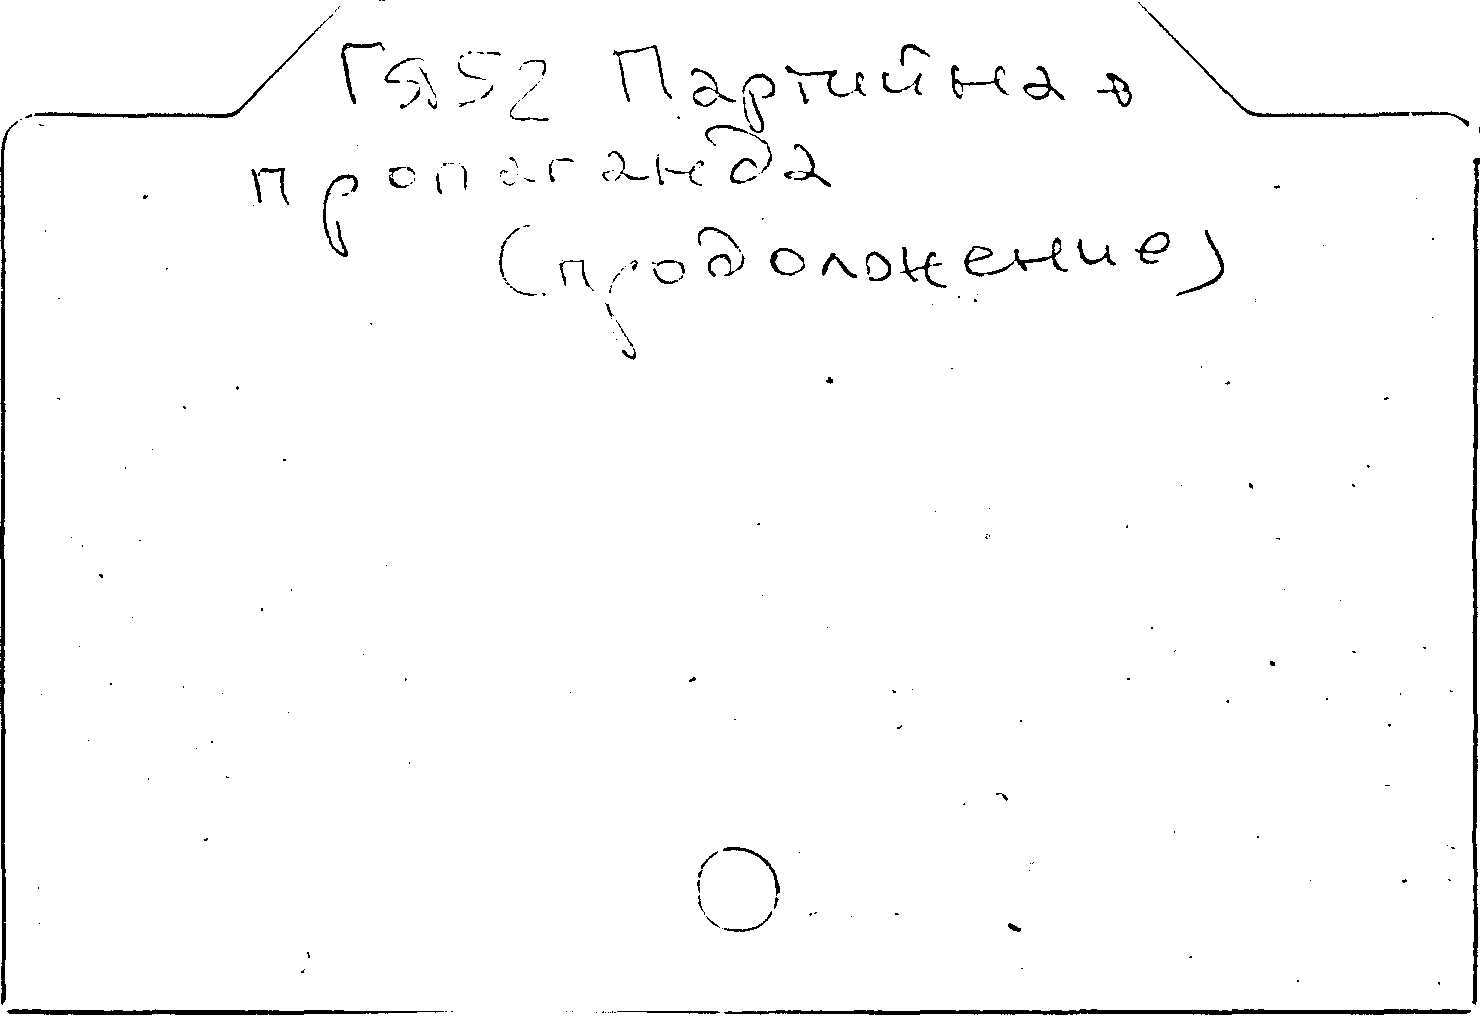 Гя52 Партийная
пропаганда
(продолжение)